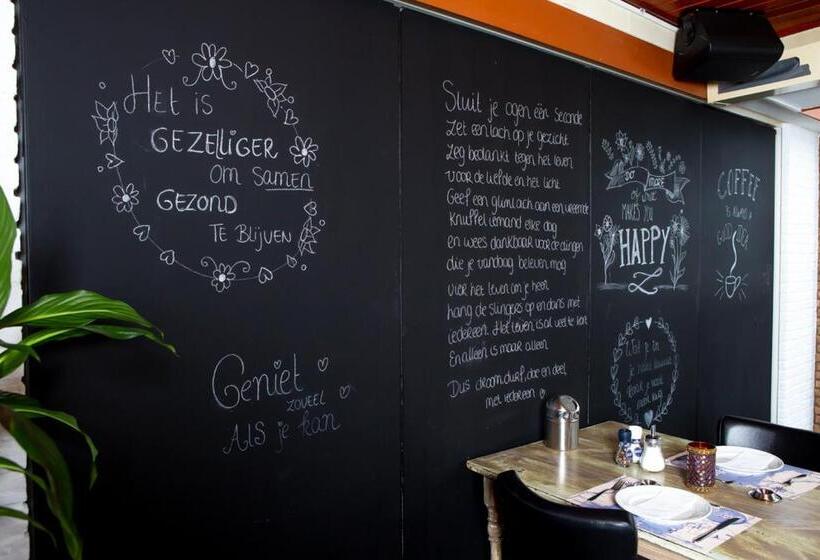 Het is
GEZELLIGER
om SAMEN
GEZOND
TE BLIJVEN
Geniet
ZOVEEL
ALS je kan
Sluit je ogen één seconde
Zet een lach op je gezicht
Zeg bedankt tegen het leven
voor de liefde en het licht
Geef een glimlach aan een vreemde
Knuffel iemand elke dag
en wees dankbaar voor de dingen
die je vandaag beleven mag
Vier het leven om je heen
hang de slingers op en dans met
iedereen. Het leven is al veel te kort
En alleen is maar alleen
Dus droom, durf, doe en deel
met iedereen
DO MORE
OF what
MAKES YOU
HAPPY
COFFEE
is always a
GOOD